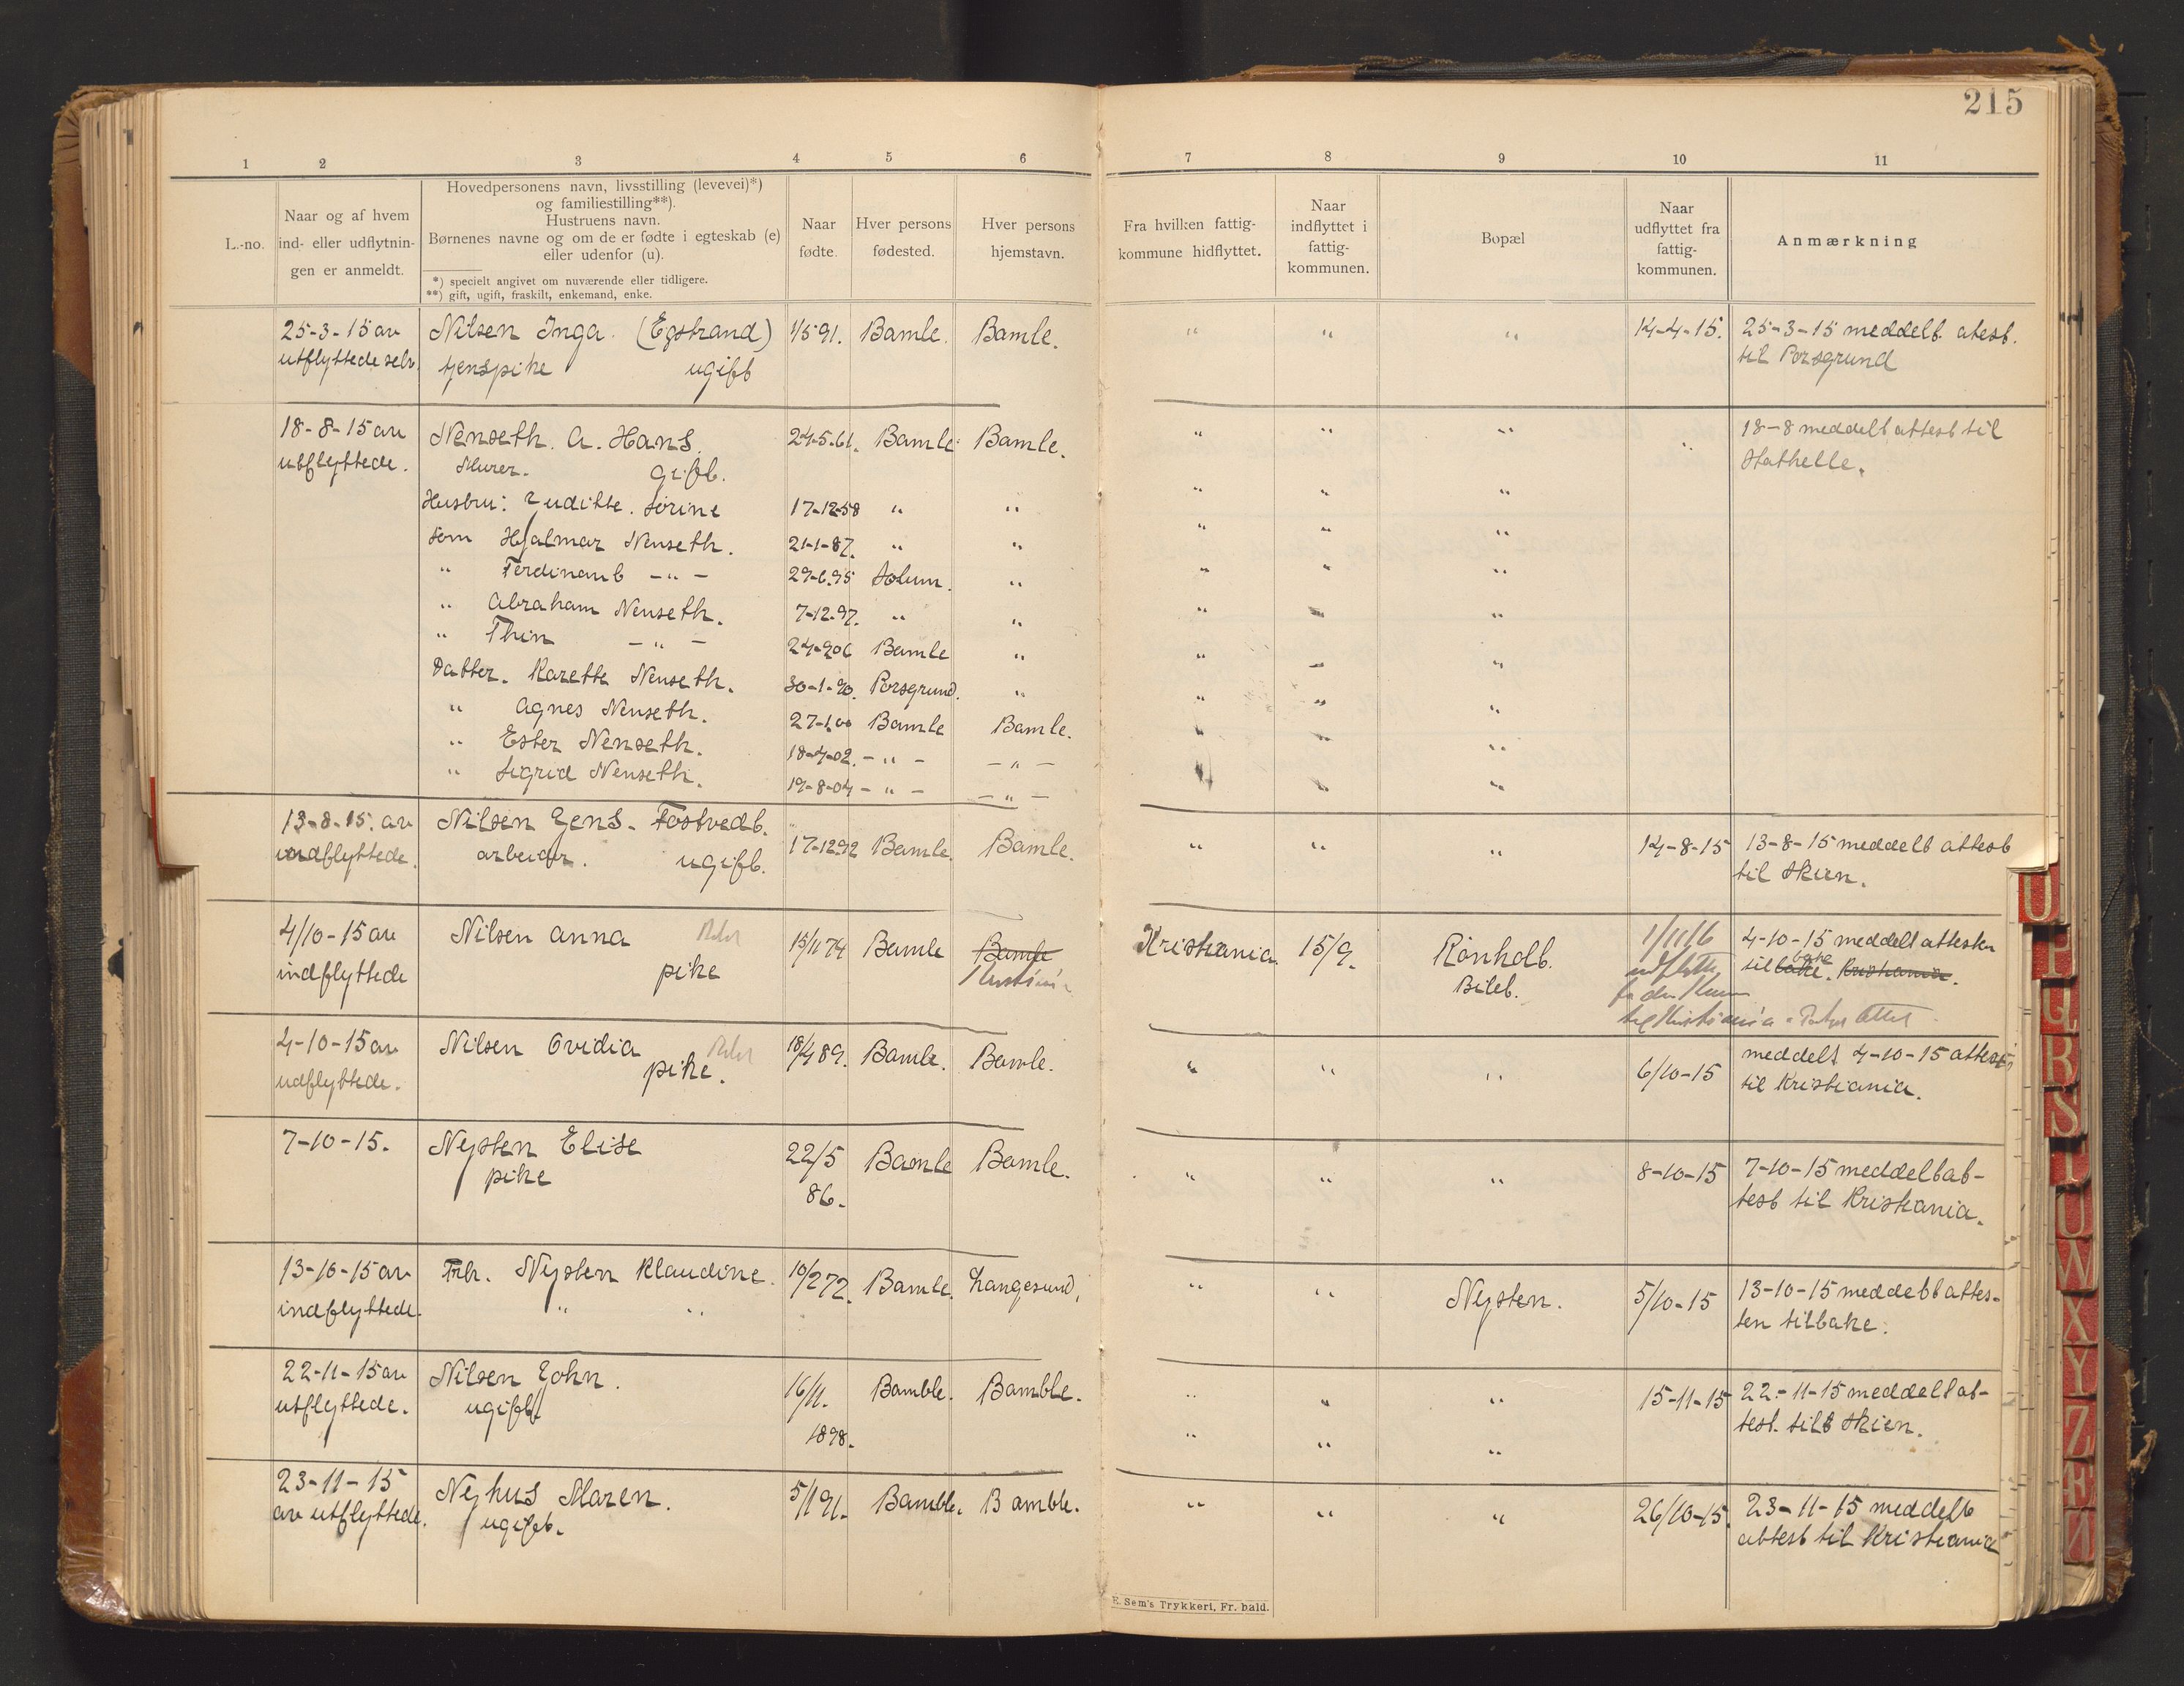 215
1 2 3 4 5 6 7 8 9 10 11
L.-no.
Naar og af hvem
ind- eller udflytnin-
gen er anmeldt.
Hovedpersonens navn, livsstilling (levevei)*)
og familiestilling**).
Hustruens navn.
Børnenes navne og om de er fødte i egteskab (e)
eller udenfor (u).
*) specielt angivet om nuværende eller tidligere.
**) gift, ugift, fraskilt, enkemand, enke.
Naar
fødte.
Hver persons
fødested.
Hver persons
hjemstavn.
Fra hvilken fattig-
kommune hidflyttet.
Naar
indflyttet i
fattig-
kommunen.
Bopæl
Naar
udflyttet fra
fattig-
kommunen.
Anmærkning
25-3-15 av Nilsen Inga. (Egstrand) 1/5 91. Bamle. Bamle. " " " 14-4-15. 25-3-15 meddelt. atest.
utflyttede selv. tjenspike ugift til Porsgrund
18-8-15 av Nenseth. A. Hans. 24-5-61. Bamle. Bamle. " " " " 18-8 meddelt attest til
utflyttede. Murer. Gift. Stathelle.
Hustru: Juditte. Sorine 17-12-58 " " " " "
Søn Hjalmar Nenseth. 21-1-87. " " " " "
" Ferdinant -"- 29-6.95 Solum. " " " "
" Abraham Nenseth. 7-12.97. " " " "
" Thin -"- 24-906 Bamle " " "
Datter. Karette Nenseth. 30-1-90. Porsgrund. " " "
" Agnes Nenseth. 27-1.00 Bamle Bamle. " " "
" Ester Nenseth. 18-4-02. -"- -"- "
" Sigrid Nenseth. 19-8-04 -"- -"- " "
13-8-15. av Nilsen Jens. Tostvedt. 17-12.92 Bamle. Bamle. " " " 14-8-15 13-8-15 meddelt attest
indflyttede. arbeider. ugift. til Skien.
4/10-15 av Nilsen Anna 15/11 74 Bamle Bamle Kristiania. 15/9. Rønholt. 1/11 16 4-10-15 meddelt attesten
indflyttede pike Kristiania Bilet. tilbake. Kristiania.
til Kristiania
4-10-15 av Nilsen Ovidia 18/4 89. Bamle. Bamle. " " " 6/10-15 meddelt 4-10-15 attest
udflyttede. pike. til Kristiania.
7-10-15. Nysten Elise 22/5 Bamle Bamle. " " " 8-10-15 7-10-15 meddelt at-
pike 86. test til Kristiania.
13-10-15 av Frk. Nysten Klaudine. 10/2 72. Bamle. Langesund. " " Nysten. 5/10-15 13-10-15 meddelt attes-
indflyttede. " " ten tilbake.
22-11-15 av Nilsen John. 16/11. Bamble. Bamble. " " " 15-11-15 22-11-15 meddelt at-
utflyttede. ugift. 1898. " " " test. till Skien.
23-11-15 Nyhus Maren. 5/1 91. Bamble. Bamble. " " " 26/10-15. 23-11-15 meddelt
av utflyttede. ugift. attest til Kristiania
E. Sem's Trykkeri, Fr. hald.
O
P
Q
R
S
T
U
W
X
Y
Z
Æ
Ø